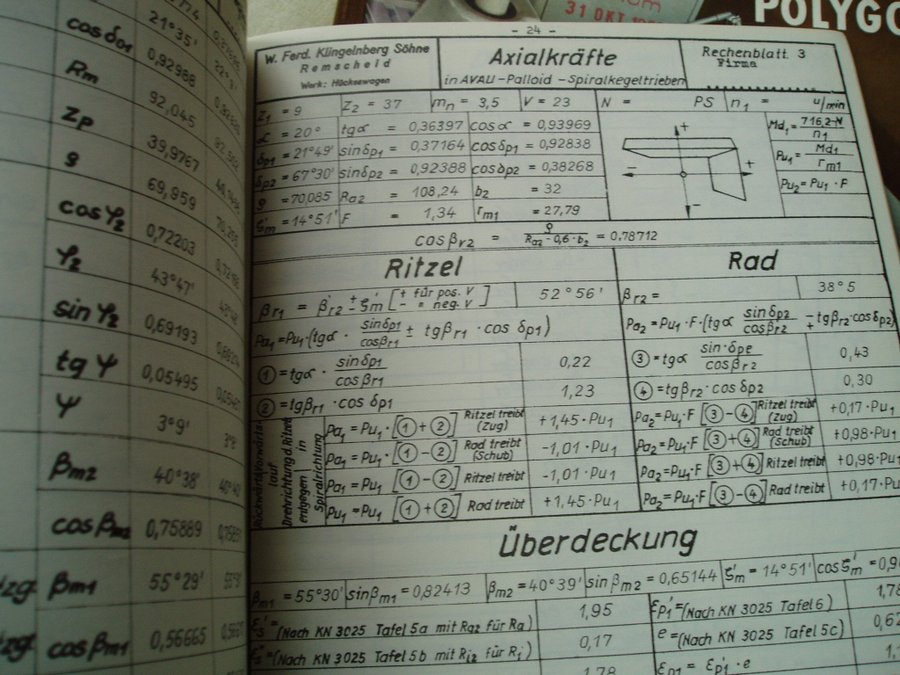 31 OKT
POLYGO
21°35'
cosδ01
0,92988
Rm
92,045
zp
39,9767
ϱ
69,959
cosφ2
0,72203
φ2
43°47'
sinφ2
0,69193
tgψ
0,05495
ψ
3°9'
βm2
40°38'
cosβm2
0,75889
βm1
55°29'
cosβm1
0,56665
- 24 -
W. Ferd. Klingelnberg Söhne
Remscheid
Werk: Hückeswagen
Axialkräfte
in AVAU-Palloid-Spiralkegeltrieben
Rechenblatt 3
Firma
z1 = 9 z2 = 37 mn = 3,5 V = 23 N = PS n1 = u/min
α = 20° tgα = 0,36397 cosα = 0,93969
δp1 = 21°49' sinδp1 = 0,37164 cosδp1 = 0,92838
δp2 = 67°30' sinδp2 = 0,92388 cosδp2 = 0,38268
ϱ = 70,085 Ra2 = 108,24 b2 = 32
ξ'm = 14°51' F = 1,34 rm1 = 27,79
+
+
-
Md1 = 716,2·N / n1
Pu1 = Md1 / rm1
Pu2 = Pu1 · F
cosβr2 = ϱ / Ra2 - 0,6·b2 = 0,78712
Ritzel
βr1 = β'r2 ± ξ'm [+ für pos. V / - = neg. V] 52°56'
Pa1 = Pu1·(tgα · sinδp1 / cosβr1 ± tgβr1 · cos δp1)
① = tgα · sinδp1 / cosβr1 0,22
② = tgβr1 · cos δp1 1,23
Rückwärts Vorwärts-
lauf
Drehrichtung d. Ritzels
entgegen in
Spiralrichtung
Pa1 = Pu1 · [① + ②] Ritzel treibt (Zug) +1,45·Pu1
Pa1 = Pu1 · [① - ②] Rad treibt (Schub) -1,01·Pu1
Pa1 = Pu1 · [① - ②] Ritzel treibt -1,01·Pu1
Pu1 = Pu1 · [① + ②] Rad treibt +1,45·Pu1
Rad
βr2 = 38°5
Pa2 = Pu1·F·(tgα sinδp2 / cosβr2 ∓ tgβr2·cosδp2)
③ = tgα sin·δpe / cosβr2 0,43
④ = tgβr2·cosδp2 0,30
Pa2 = Pu1·F [③-④] Ritzel treibt (Zug) +0,17·Pu1
Pa2 = Pu1·F [③+④] Rad treibt (Schub) +0,98·Pu1
Pa2 = Pu1·F [③+④] Ritzel treibt +0,98·Pu1
Pa2 = Pu1·F [③-④] Rad treibt +0,17·Pu1
Überdeckung
βm1 = 55°30' sinβm1 = 0,82413 βm2 = 40°39' sinβm2 = 0,65144 ξ'm = 14°51' cosξ'm
= (Nach KN 3025 Tafel 5a mit Ra2 für Ra) 1,95
= (Nach KN 3025 Tafel 5b mit Ri2 für Ri) 0,17
1,78
ε'p1 = (Nach KN 3025 Tafel 6)
e = (Nach KN 3025 Tafel 5c)
εp1 = ε'p1 · e